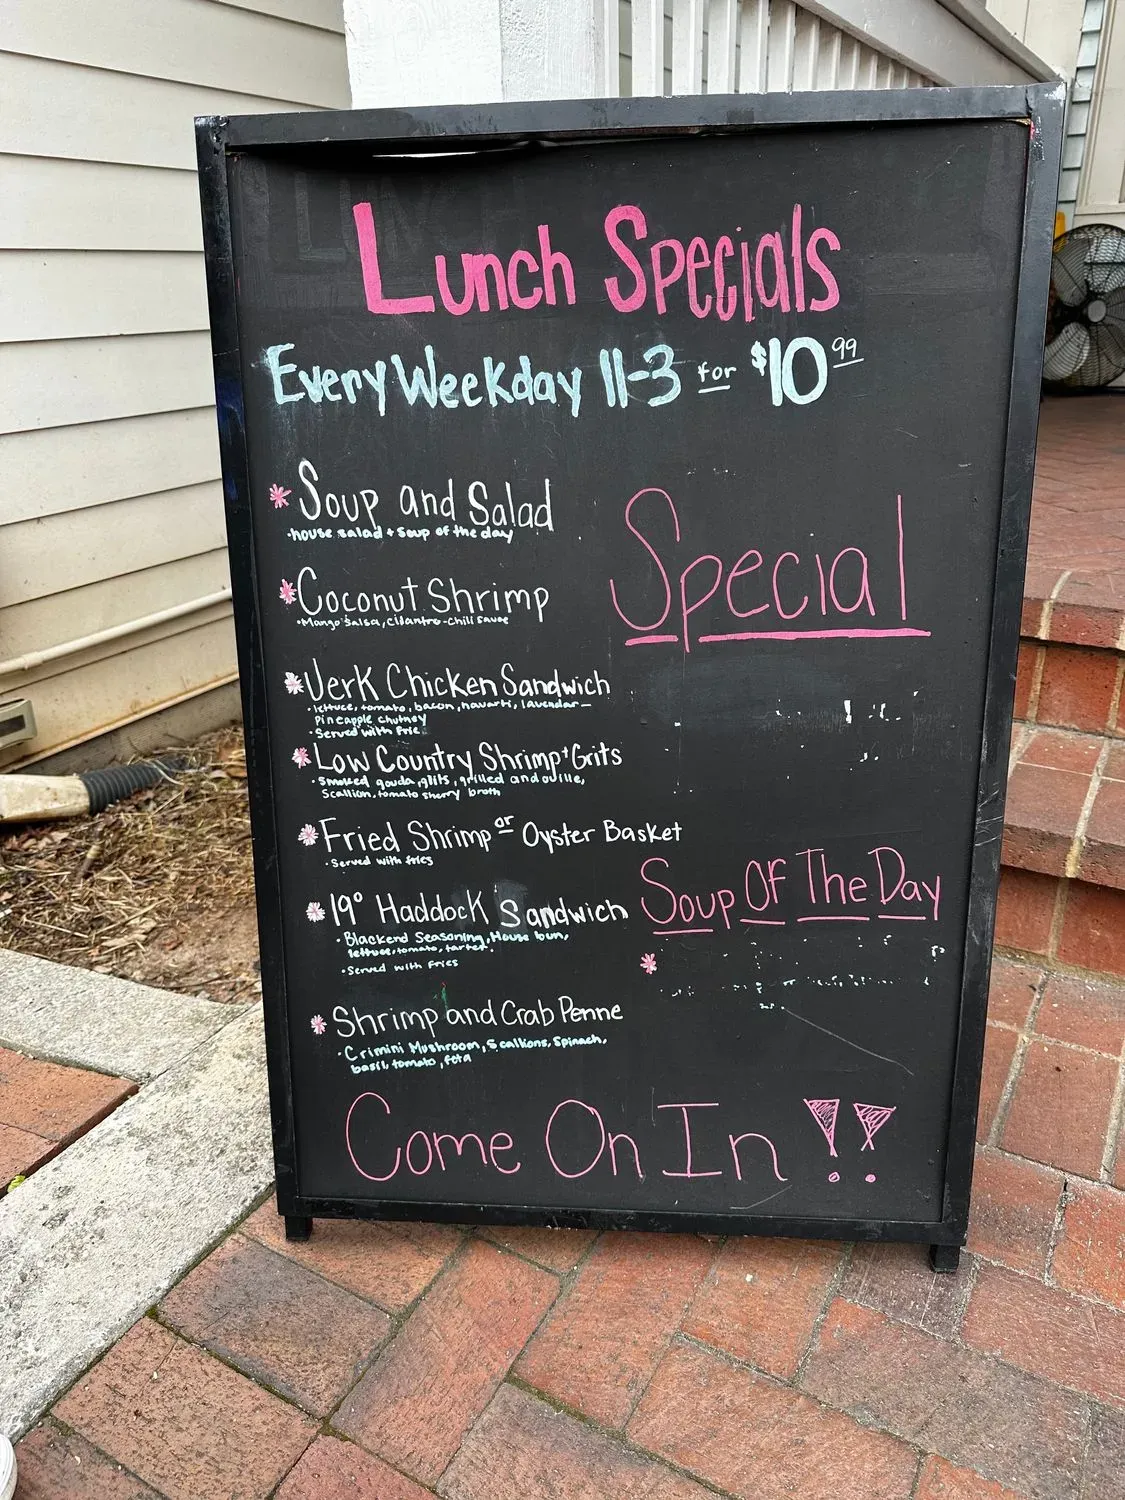 Lunch Specials
Every Weekday 11-3 for $10 99
Soup and Salad
·house salad + soup of the day
Special
Coconut Shrimp
·Mango Salsa, cilantro-chili sauce
Jerk Chicken Sandwich
·lettuce, tomato, bacon, havarti, lavender-
Pineapple chutney
·Served with Frie
Low Country Shrimp+Grits
·Smoked gouda grits, grilled andouille,
Scallion, tomato sherry broth
Fried Shrimp or Oyster Basket
·Served with fries
Soup Of The Day
19° Haddock Sandwich
·Blackend Seasoning, House bun,
lettuce, tomato, tarter
·Served with Fries
Shrimp and Crab Penne
·Crimini Mushroom, Scallions, Spinach,
basil, tomato, feta
Come On In!!